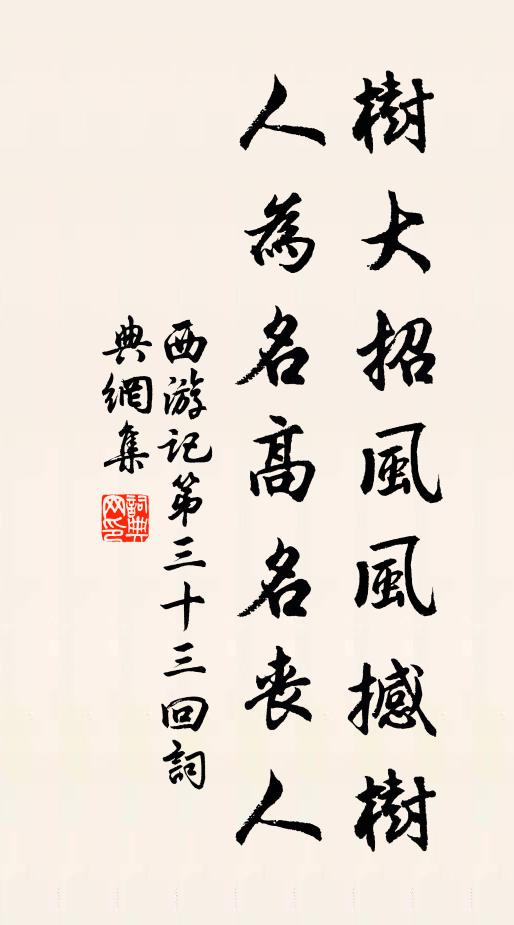 樹大招風風撼樹
人為名高名喪人
西游記第三十三回詞
典網集
詞典网印